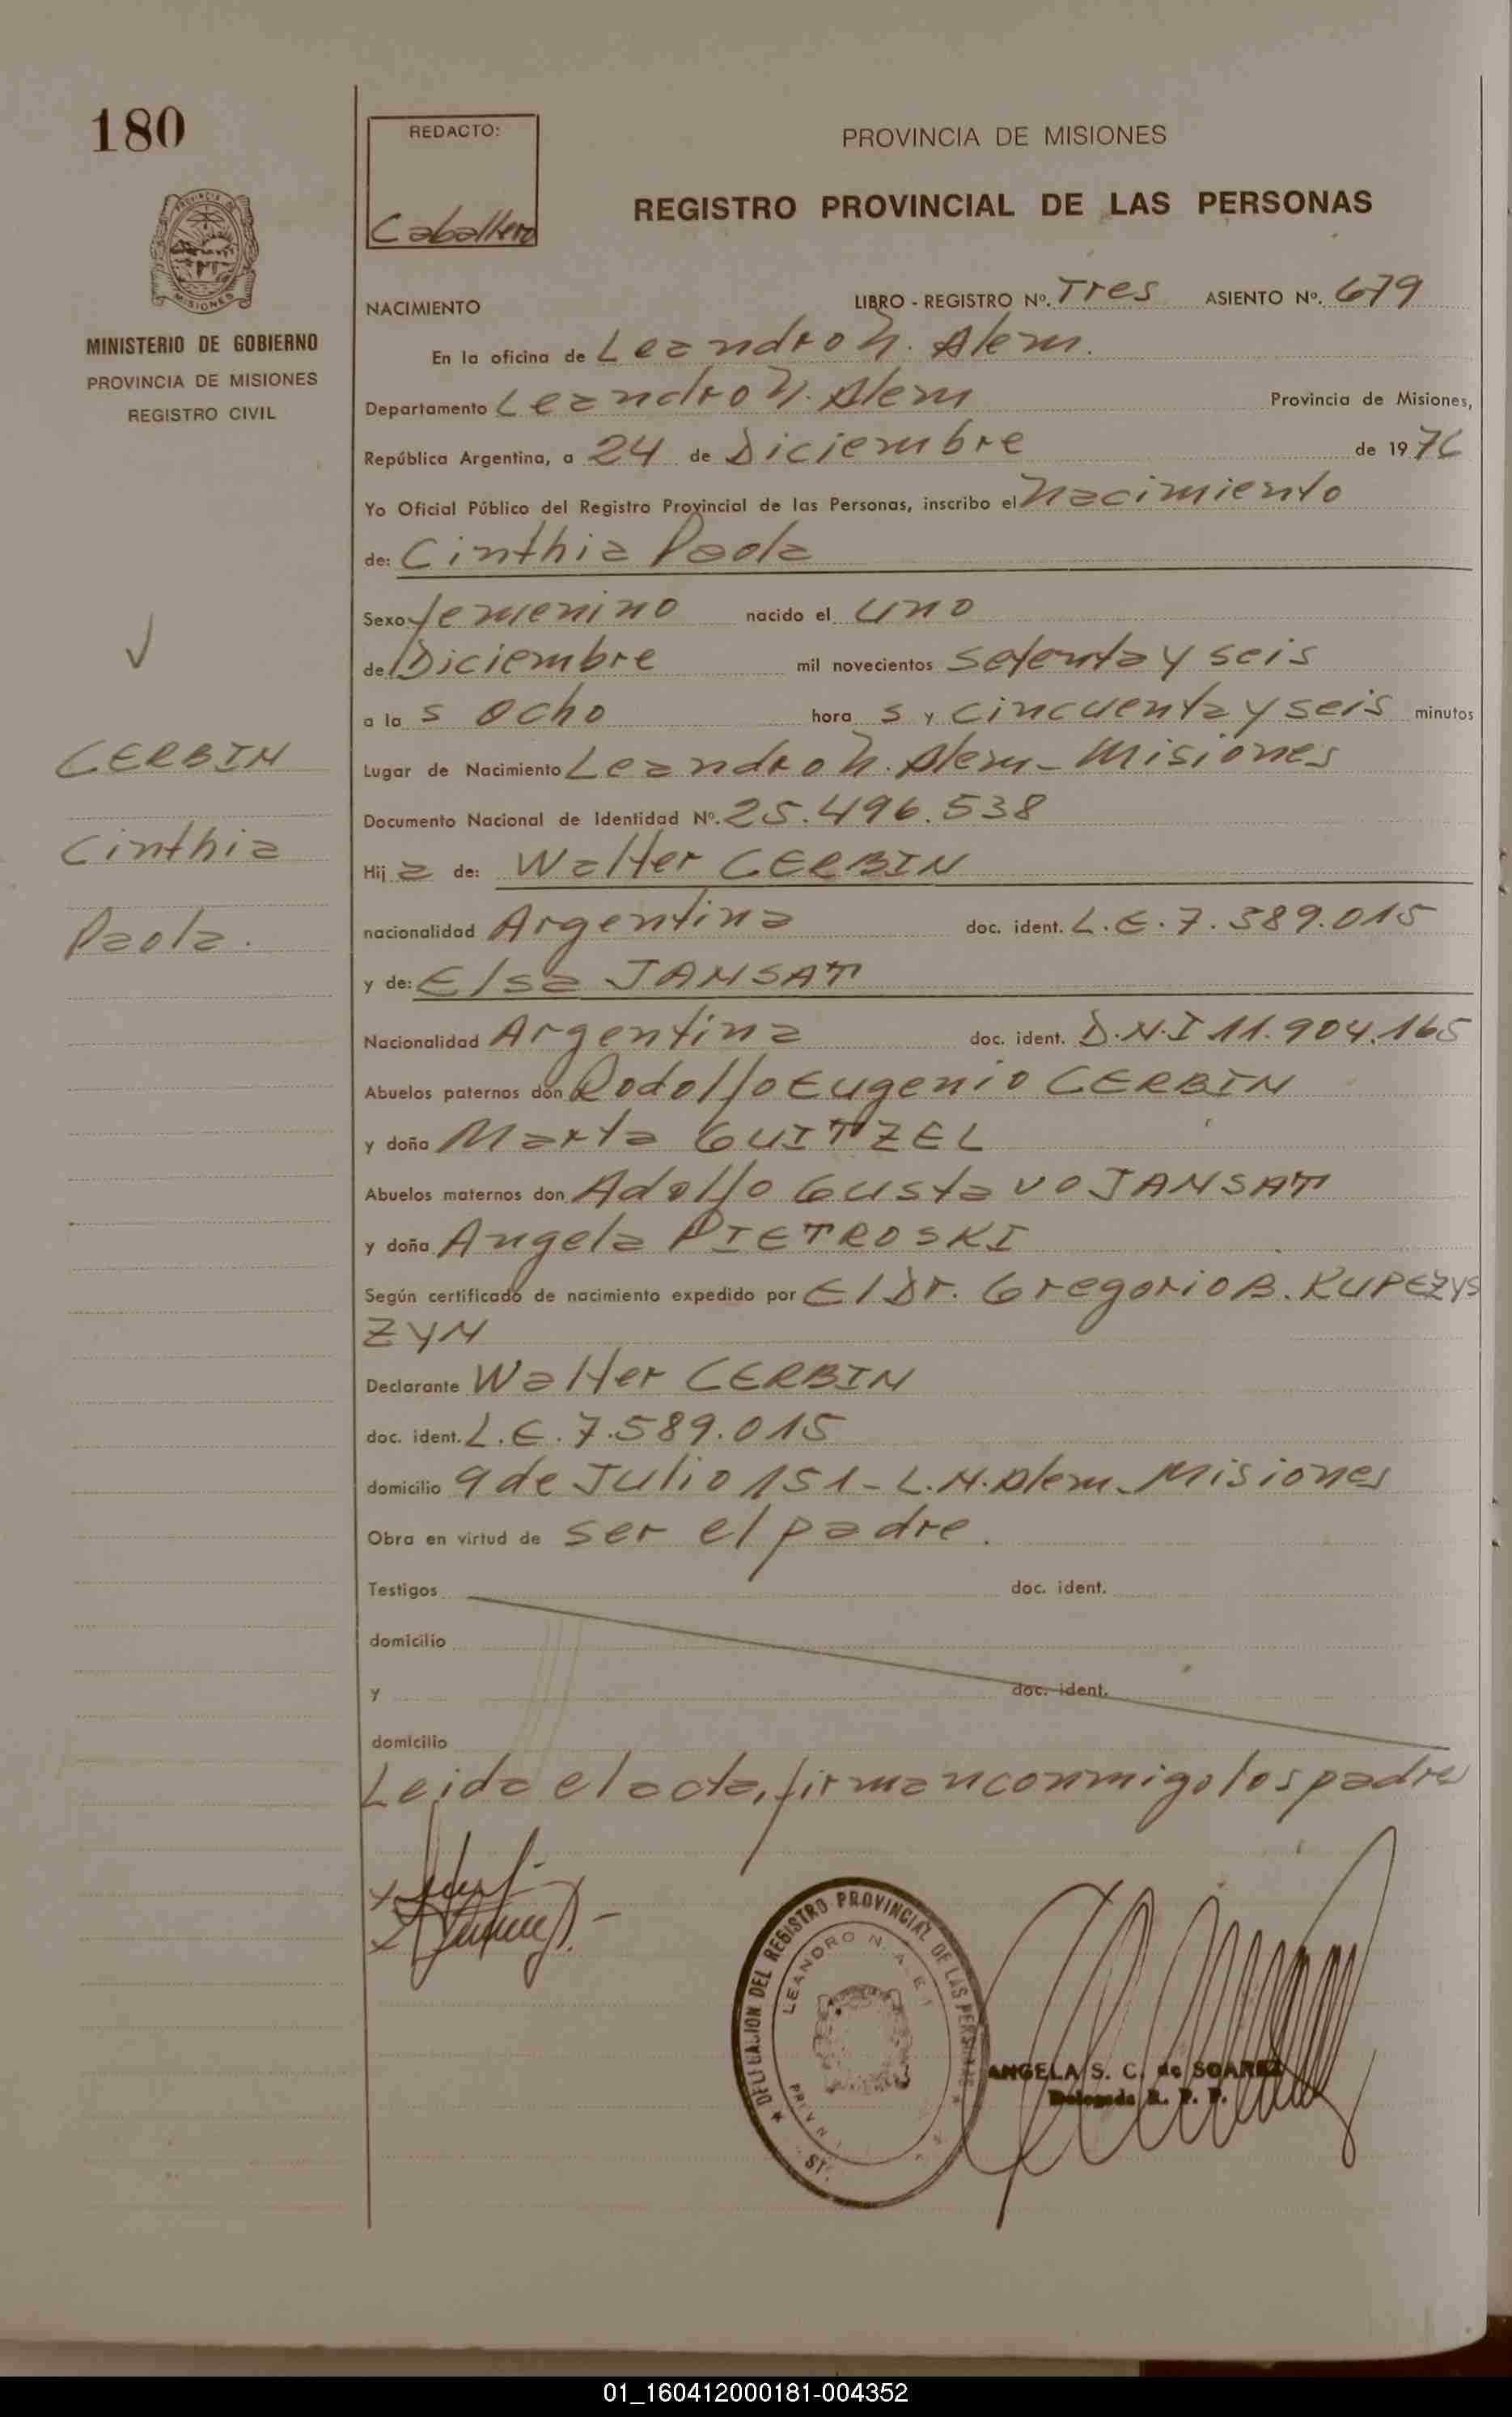 180
REDACTO:
Caballero
PROVINCIA DE MISIONES
REGISTRO PROVINCIAL DE LAS PERSONAS
MISIONES
MINISTERIO DE GOBIERNO
PROVINCIA DE MISIONES
REGISTRO CIVIL
NACIMIENTO LIBRO - REGISTRO Nº. Tres ASIENTO Nº. 679
En la oficina de Leandro N. Alem.
Departamento Leandro N. Alem Provincia de Misiones,
República Argentina, a 24 de Diciembre de 1976
Yo Oficial Público del Registro Provincial de las Personas, inscribo el Nacimiento
de: Cinthia Paola
Sexo femenino nacido el uno
de Diciembre mil novecientos setenta y seis
a las ocho horas y cincuenta y seis minutos
Lugar de Nacimiento Leandro N. Alem - Misiones
Documento Nacional de Identidad Nº. 25.496.538
Hija de: Walter CERBIN
nacionalidad Argentina doc. ident. L.E. 7.589.015
y de: Elsa JANSAT
Nacionalidad Argentina doc. ident. D.N.I 11.904.165
Abuelos paternos don Rodolfo Eugenio CERBIN
y doña Marta GUITZEL
Abuelos maternos don Adolfo Gustavo JANSAT
y doña Angela PIETROSKI
Según certificado de nacimiento expedido por El Dr. Gregorio B. KUPEZYS
ZYN
Declarante Walter CERBIN
doc. ident. L.E. 7.589.015
domicilio 9 de Julio 151 - L.N. Alem - Misiones
Obra en virtud de ser el padre.
Testigos doc. ident.
domicilio
y doc. ident.
domicilio
Leida el acta, firman conmigo los padres
CERBIN
Cinthia
Paola.
DELEGACION DEL REGISTRO PROVINCIAL DE LAS PERSONAS
LEANDRO N. ALEM
ANGELA S. C. de SOAREZ
Delegada R. P. P.
01_160412000181-004352